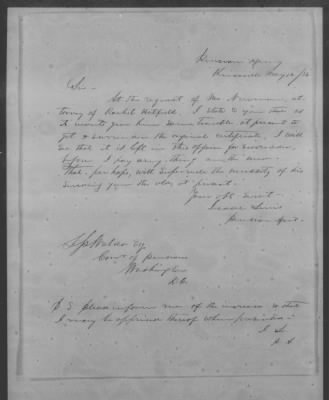 Pension Agency
Sir
At the request of Mr. Newman, at-
torney of Rachel Hatfield, I state to you that as
it would give him some trouble at present to
get & surrender the original certificate, I will
see that it is left in this office for surrender
before I pay any thing on the new.
That perhaps will supersede the necessity of his
sending you the old at present.
Your Obt Servt
Isaac Lewis
Pension Agt.
Esq
Comr of Pensions
Washington
D.C.
P.S. please inform me of the increase so that
I may be apprised thereof when presented